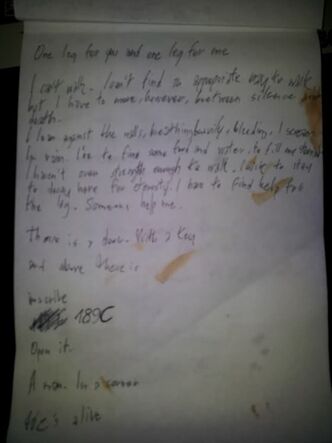 One leg for you and one leg for me
I can't walk. I can't find an appropriate way to walk
but I have to move, however, between silence and
death.
I lean against the walls, breathing heavily, bleeding. I scream
In vain. I've to find some food and water, to fill my
I haven't even strength enough to walk. I to stay
to here for eternity. I have to find help for
the leg. Someone help me.
There is a door. With a key
and above there is
inscribe
189C
Open it.
A man. In a corner
's alive